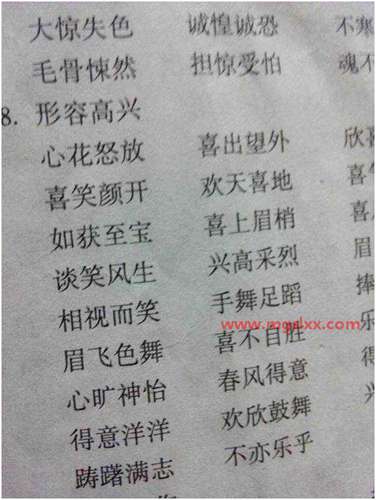 大惊失色 诚惶诚恐 不寒
毛骨悚然 担惊受怕 魂不
8. 形容高兴
心花怒放 喜出望外 欣喜
喜笑颜开 欢天喜地 喜
如获至宝 喜上眉梢 喜
谈笑风生 兴高采烈 眉
相视而笑 手舞足蹈 捧
眉飞色舞 喜不自胜 乐
心旷神怡 春风得意 得
得意洋洋 欢欣鼓舞 兴
踌躇满志 不亦乐乎
www.mgdxx.com